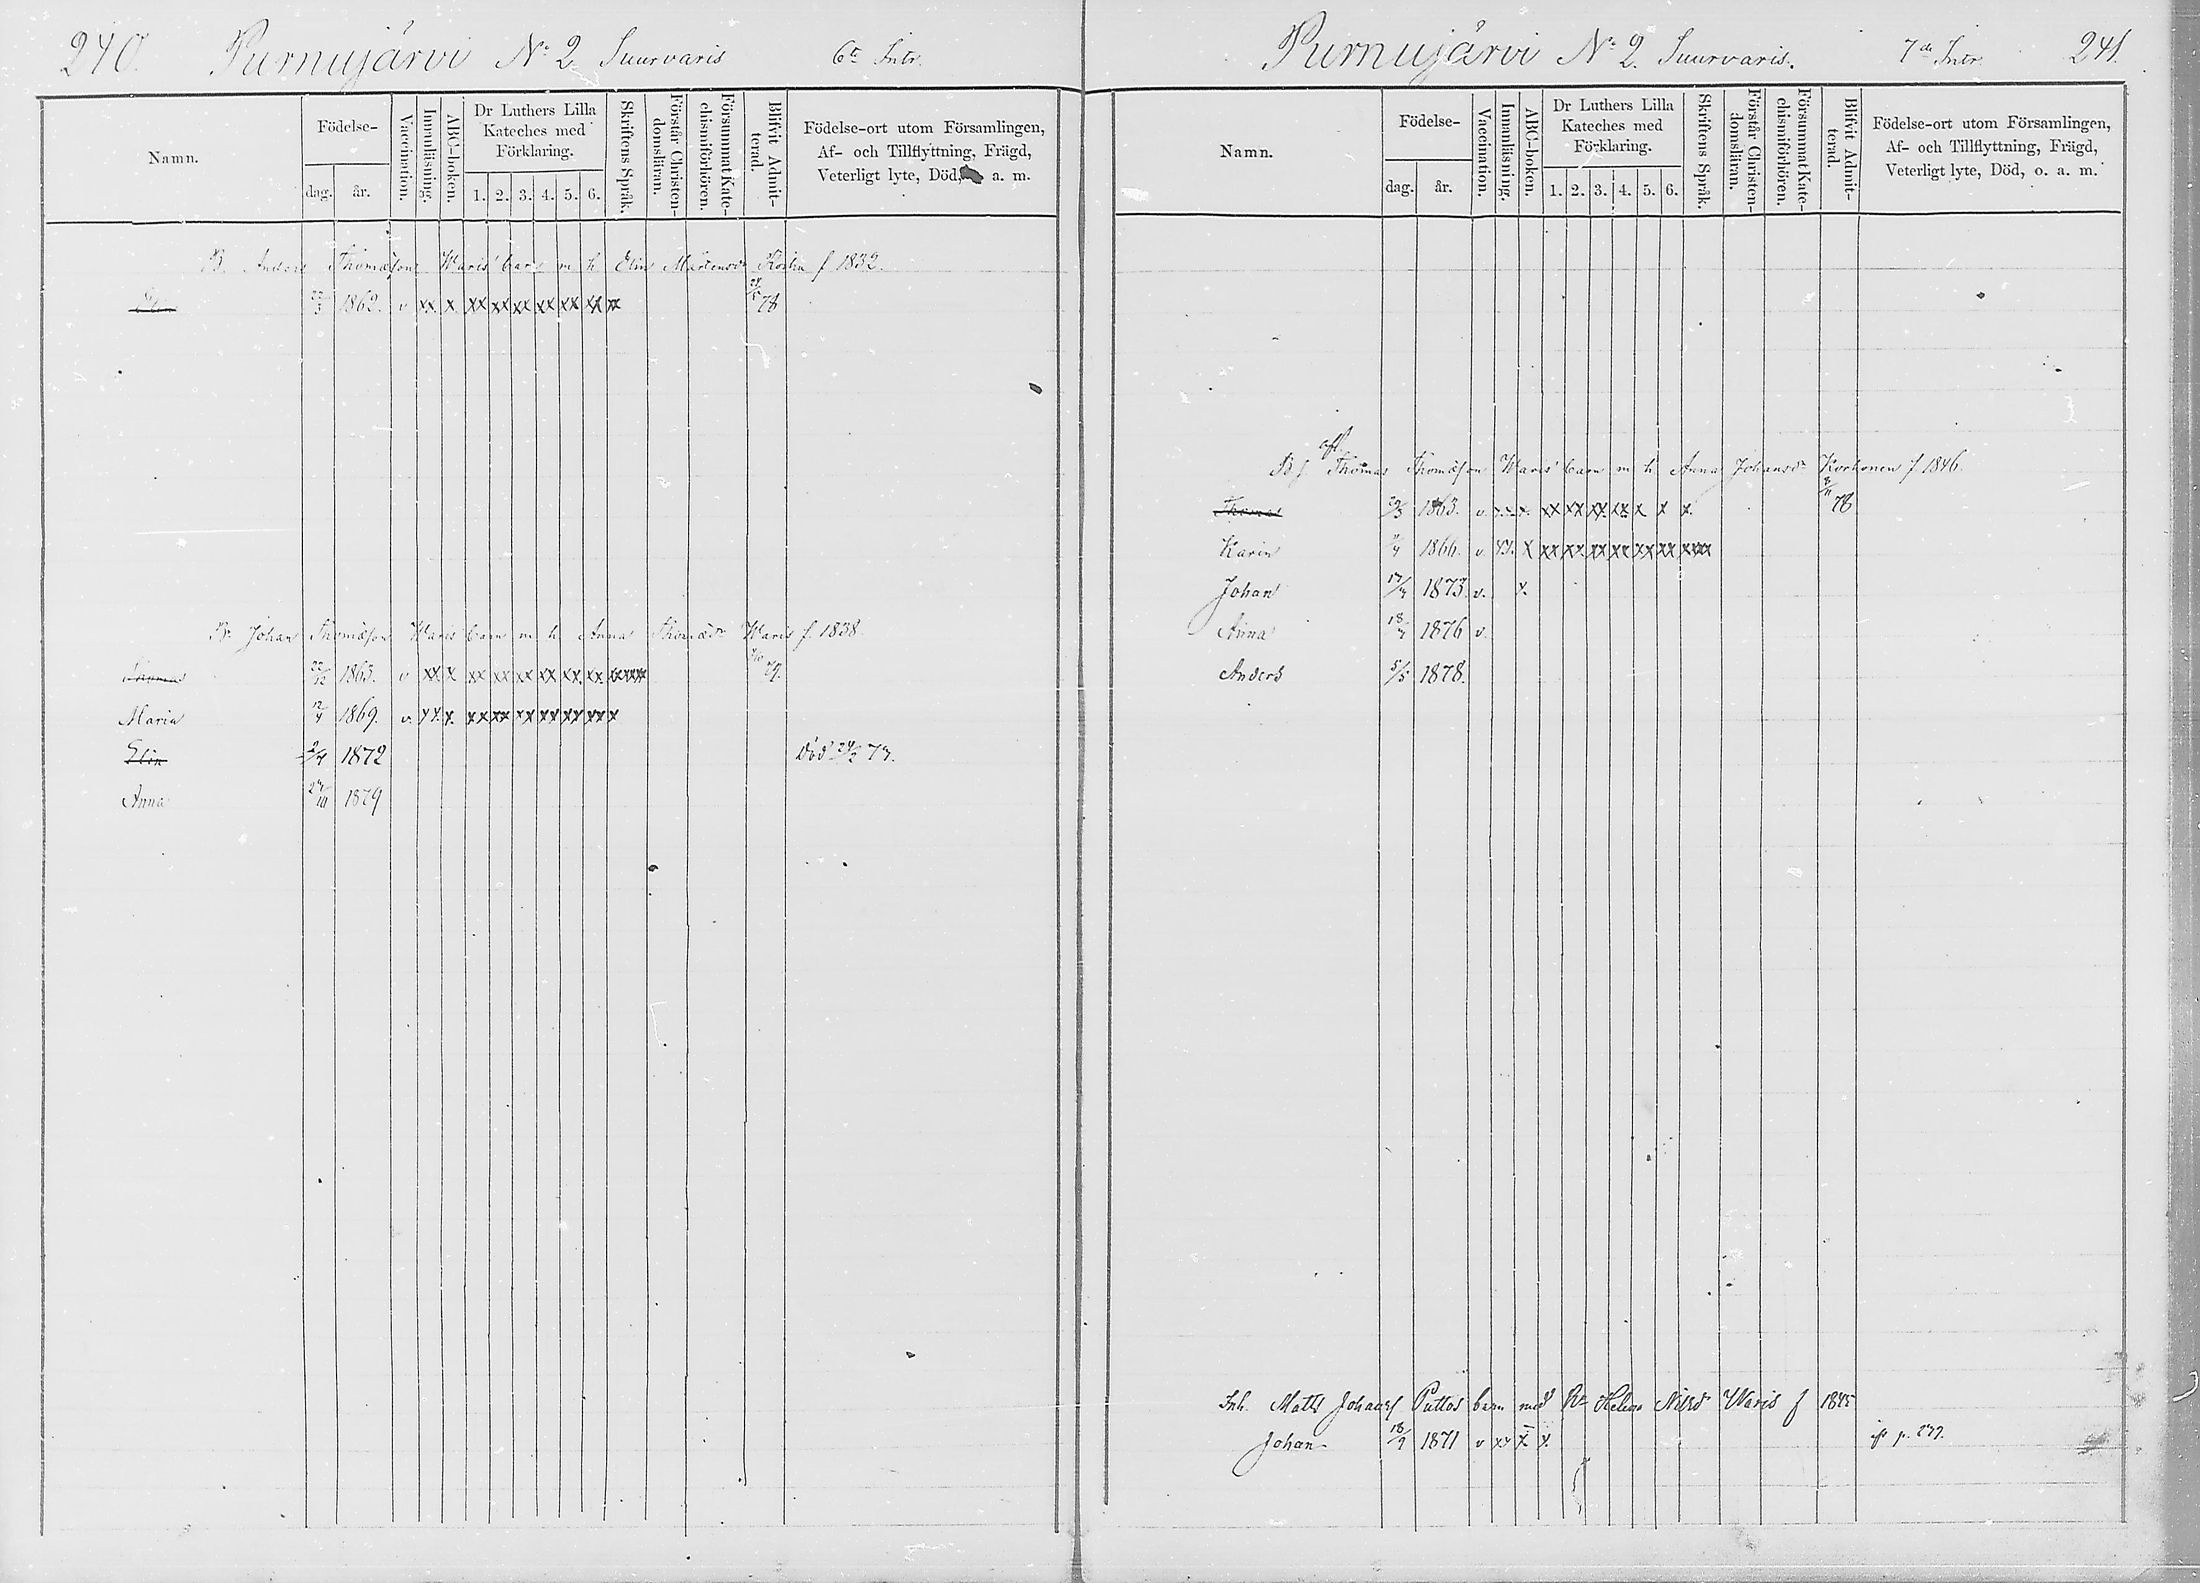 240. Purnujärvi No 2. Suurvaris 6te Intr.
Namn.
Födelse-
dag. år.
Vaccination.
Innanläsning.
ABC-boken.
Dr Luthers Lilla
Kateches med
Förklaring.
1. 2. 3. 4. 5. 6.
Skriftens Språk.
Förstår Christen-
domsläran.
Försummat Kate-
chismiförhören.
Blifvit Admit-
terad.
Födelse-ort utom Församlingen,
Af- och Tillflyttning, Frägd,
Veterligt lyte, Död, a. m.
B. Anders Thomæson Waris' barn m h Elin Mårtensdr f 1832.
Elin 1862. v xx x xx xx xx xx xx xx xx 78
Br Johan Thomæson Waris barn m h Anna Thomædr Waris f 1838.
Thomas 22/12 1863. v xx x xx xx xx xx xx xx xxxxx 79.
Maria 12/4 1869. v. xx. x. xx xx xx xx xx xx x
Elin 2/4 1872 Död 24/2 73.
Anna 27/III 1879
Purnujärvi No 2. Suurvaris. 7de Intr. 241.
Namn.
Födelse-
dag. år.
Vaccination.
Innanläsning.
ABC-boken.
Dr Luthers Lilla
Kateches med
Förklaring.
1. 2. 3. 4. 5. 6.
Skriftens Språk.
Förstår Christen-
domsläran.
Försummat Kate-
chismiförhören.
Blifvit Admit-
terad.
Födelse-ort utom Församlingen,
Af- och Tillflyttning, Frägd,
Veterligt lyte, Död, o. a. m.
afl.
Thomas Thomæson Waris' barn m h. Anna Johansdr Korhonen f 1846.
Thomas 1863. v. x.x. x. xx xx xx. xx x x x. 78
Karin 1866. v. xx. x xx xx. xx xx xx xx xxxx
Johan 17/4 1873 v. x.
Anna 1876 v.
Anders 5/5 1878.
Inh. Matts Johansf Puttos barn med Helena Nilsdr Waris f 1845
Johan 18/9 1871 v xx x x p. 239.